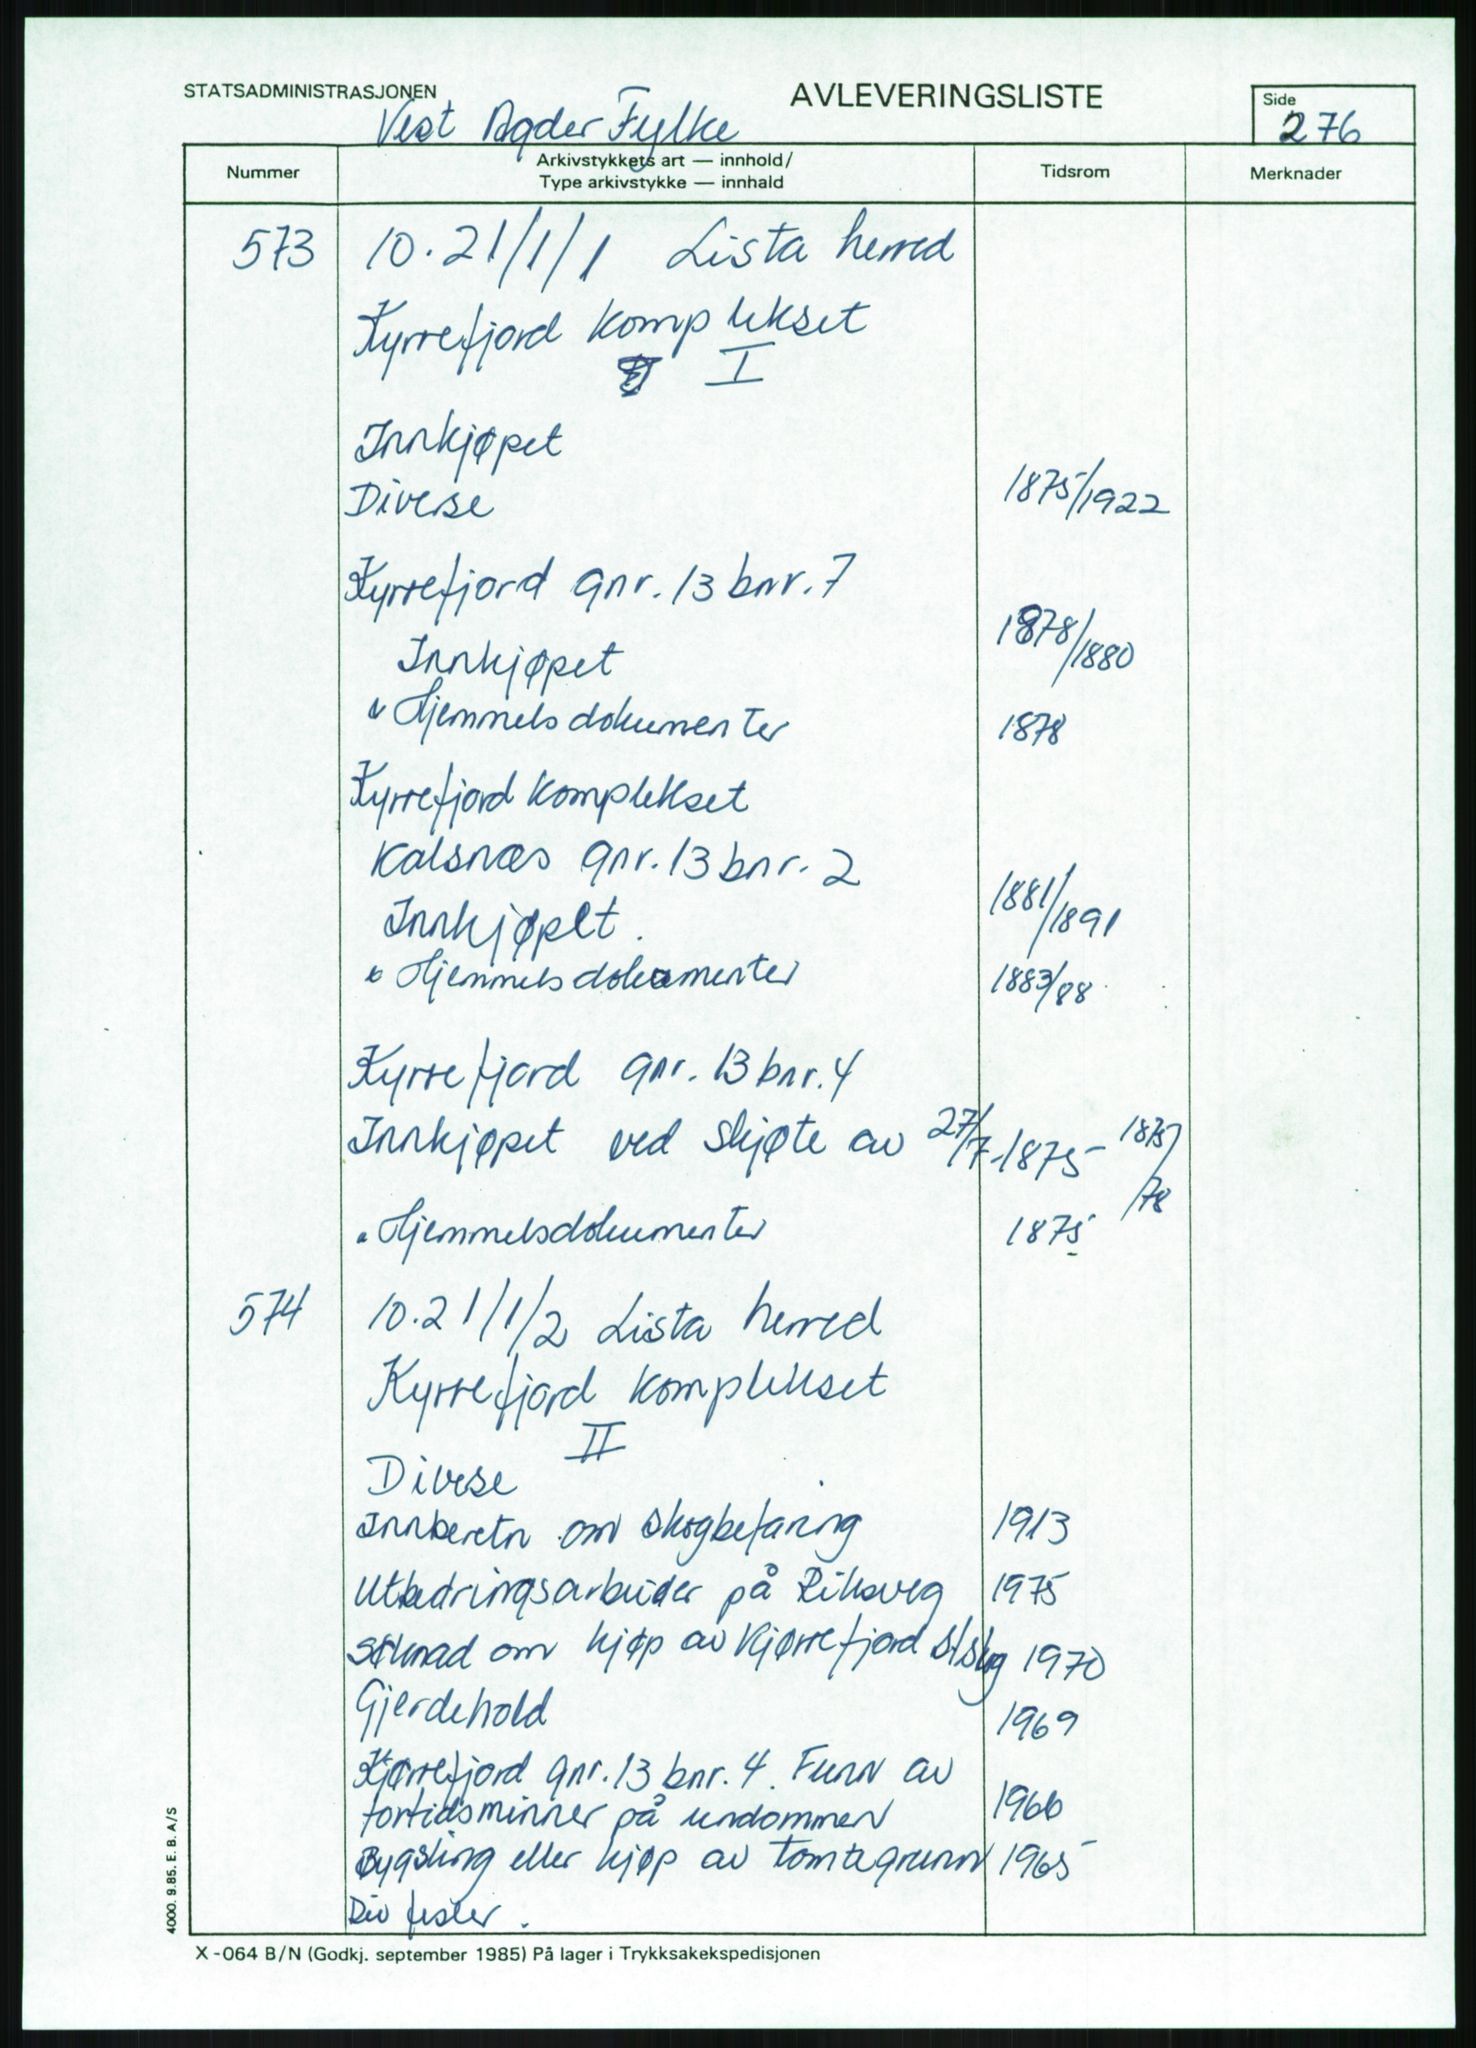 STATSADMINISTRASJONEN
AVLEVERINGSLISTE
Side
276
Vest Agder Fylke
Nummer
Arkivstykkets art — innhold/
Type arkivstykke — innhald
Tidsrom
Merknader
573 10.21/1/1 Lista herred
Kyrrefjord komplekset
I
Innkjøpet
Diverse 1875/1922
Kyrrefjord gnr. 13 bnr. 7
Innkjøpet 1878/1880
Hjemmelsdokumenter 1878
Kyrrefjord komplekset
Kalsnæs gnr. 13 bnr. 2
Innkjøpet. 1881/1891
Hjemmelsdokumenter 1883/88
Kyrrefjord gnr. 13 bnr. 4
Innkjøpet ved skjøte av 27/7-1875 1875/78
Hjemmelsdokumenter 1875
574 10.21/1/2 Lista herred
Kyrrefjord komplekset
II
Diverse
Innberetn om skogbefaring 1913
Utbedringsarbeider på Riksveg 1975
Søknad om kjøp av Kjørrefjord st.skog 1970
Gjerdehold 1969
Kjørrefjord gnr. 13 bnr. 4. Funn av
fortidsminner på eiendommen 1966
Bygsling eller kjøp av tomtegrunn 1965
Div fester.
4000. 9.85. E. B. A/S
X-064 B/N (Godkj. september 1985) På lager i Trykksakekspedisjonen